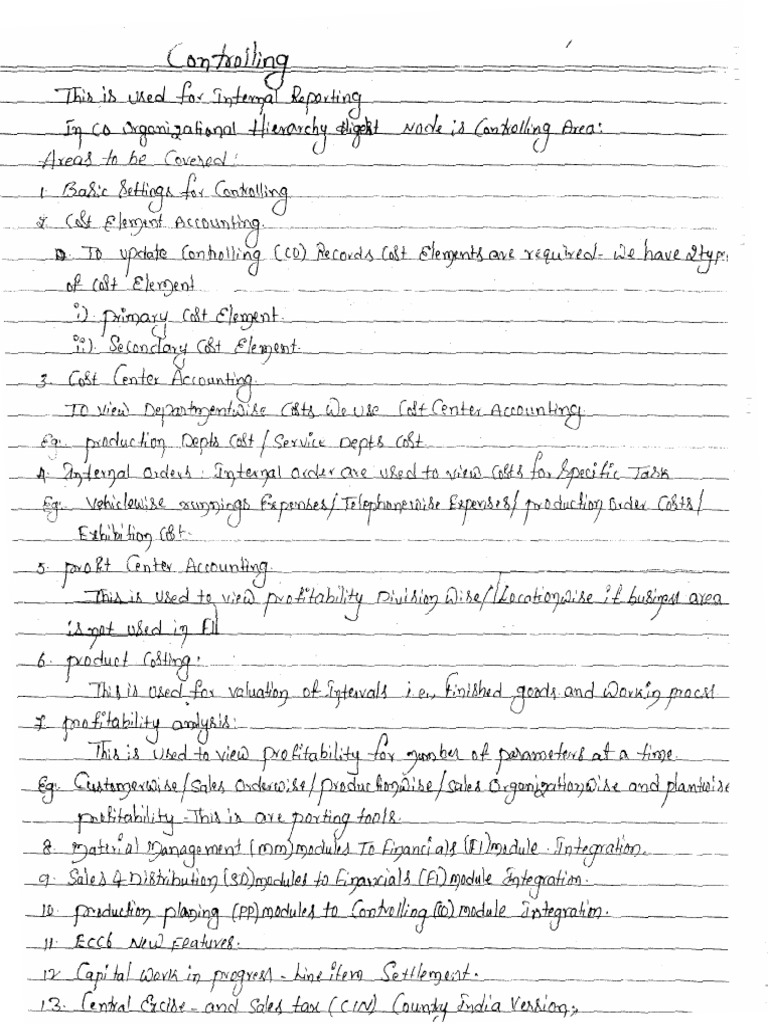 Controlling
This is used for Internal Reporting
In CO Organizational Hierarchy Higest Node is Controlling Area:
Areas to be Covered:
1. Basic Settings for Controlling
2. Cost Element Accounting.
To update Controlling (CO) Records Cost Elements are required - We have 2 type
of Cost Element
i). Primary Cost Element.
ii). Secondary Cost Element.
3. Cost Center Accounting.
To view Departmentwise Costs We use Cost Center Accounting
Eg:- production Depts Cost / Service Depts Cost
4. Internal Orders: Internal order are used to view Costs for Specific Task
Eg:- Vehiclewise runnings Expenses/Telephonewise Expenses/production Order Costs/
Exhibition Cost.
5. Profit Center Accounting.
This is used to view profitability Division Wise/Locationwise if business area
is not used in FI
6. product Costing:
This is used for valuation of Intervals i.e., Finished goods and Work in process
7. profitability analysis:
This is used to view profitability for number of parameters at a time.
Eg:- Customerwise/Sales Orderwise/productionwise/Sales Organizationwise and plantwise
profitability - This is are porting tools.
8. Material Management (MM) modules To Financials (FI) module - Integration.
9. Sales & Distribution (SD) modules to Financials (FI) module Integration.
10. production planing (PP) modules to Controlling (CO) module Integration.
11. ECC6 New Features.
12 Capital Work in progress - Line item Settlement.
13. Central Excise - and Sales tax (CIN) Country India Version:,